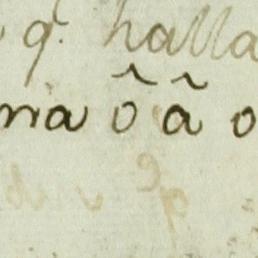 q. halla
na ô ã o